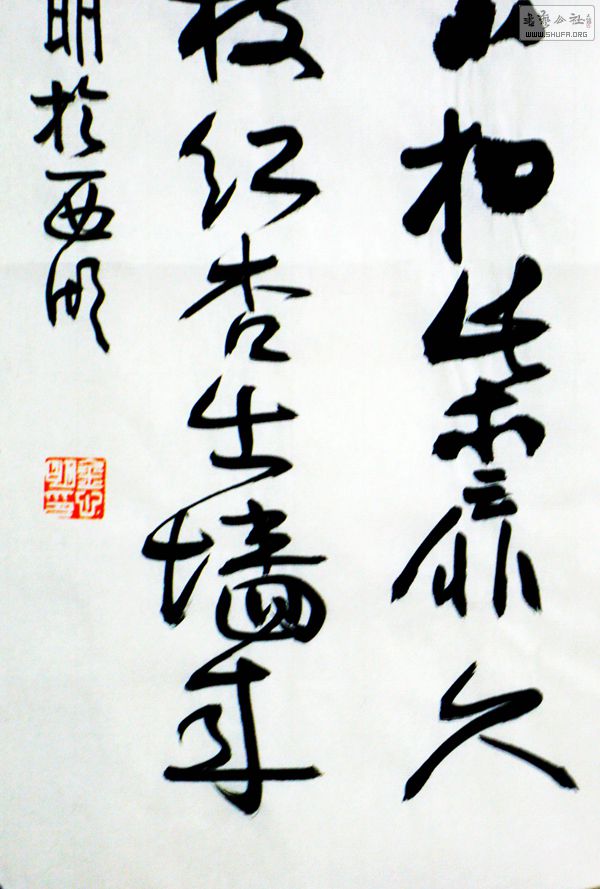 小扣柴扉久
枝红杏出墙来
明於西湖
书艺公社
WWW.SHUFA.ORG